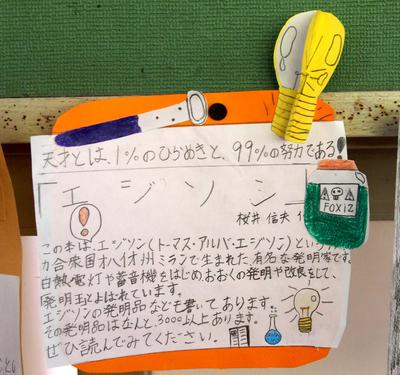 天才とは、1%のひらめきと、99%の努力である!
「エジソン
桜井 信夫
この本は、エジソン(トーマス・アルバ・エジソン)という
カ合衆国オハイオ州ミランで生まれた有名な発明家です。
白熱電灯や蓄音機をはじめおおくの発明や改良をして、
発明王とよばれています。
エジソンの発明品なども書いてあります。
その発明品はなんと、3000以上あります。
ぜひ読んでみてください。
FOXIZ